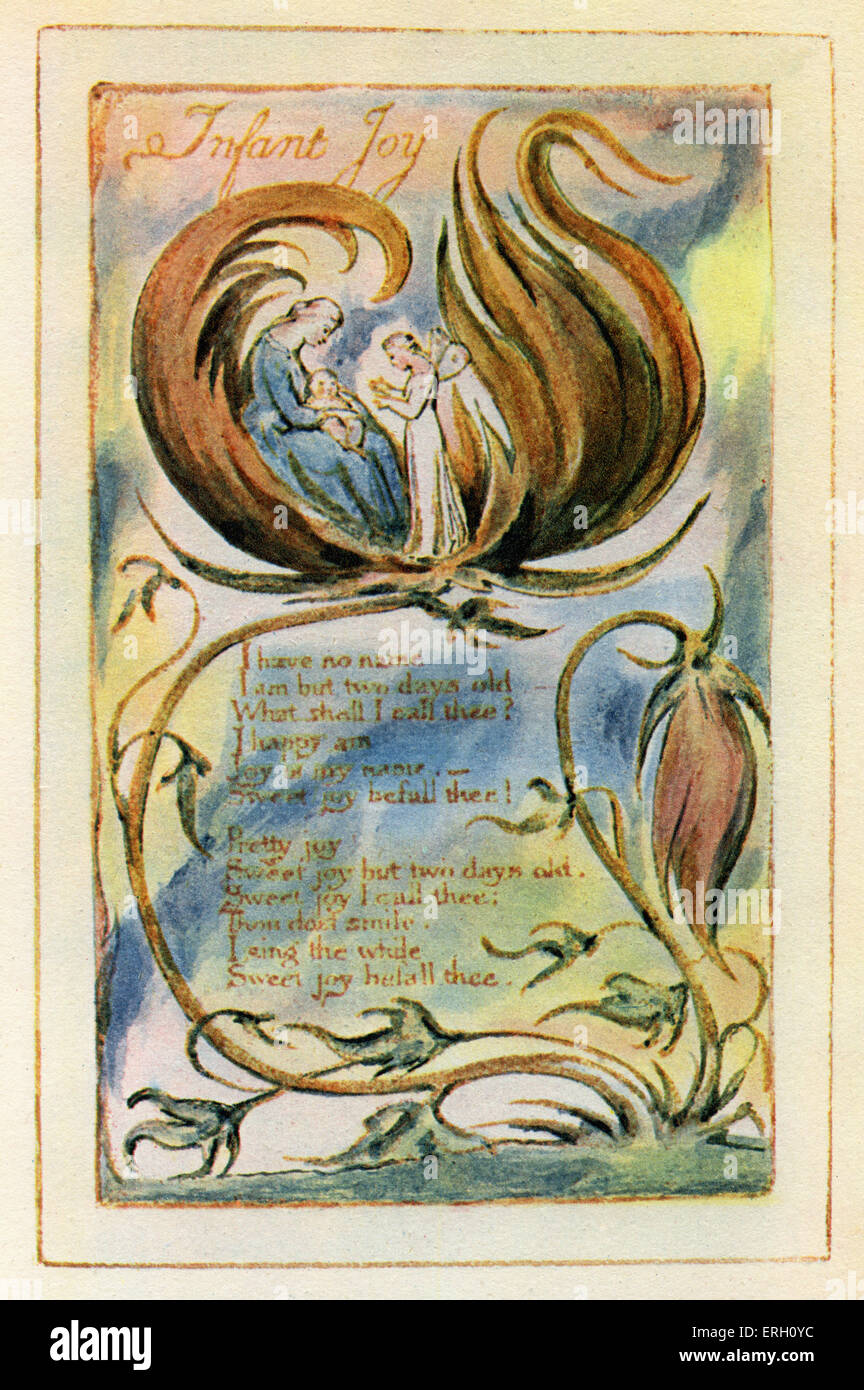 Infant Joy
I have no name
I am but two days old
What shall I call thee?
I happy am
Joy is my name. —
Sweet joy befall thee!
Pretty joy
Sweet joy but two days old.
Sweet joy I call thee:
Thou dost smile.
I sing the while
Sweet joy befall thee.
alamy
alamy stock photo
ERH0YC
www.alamy.com